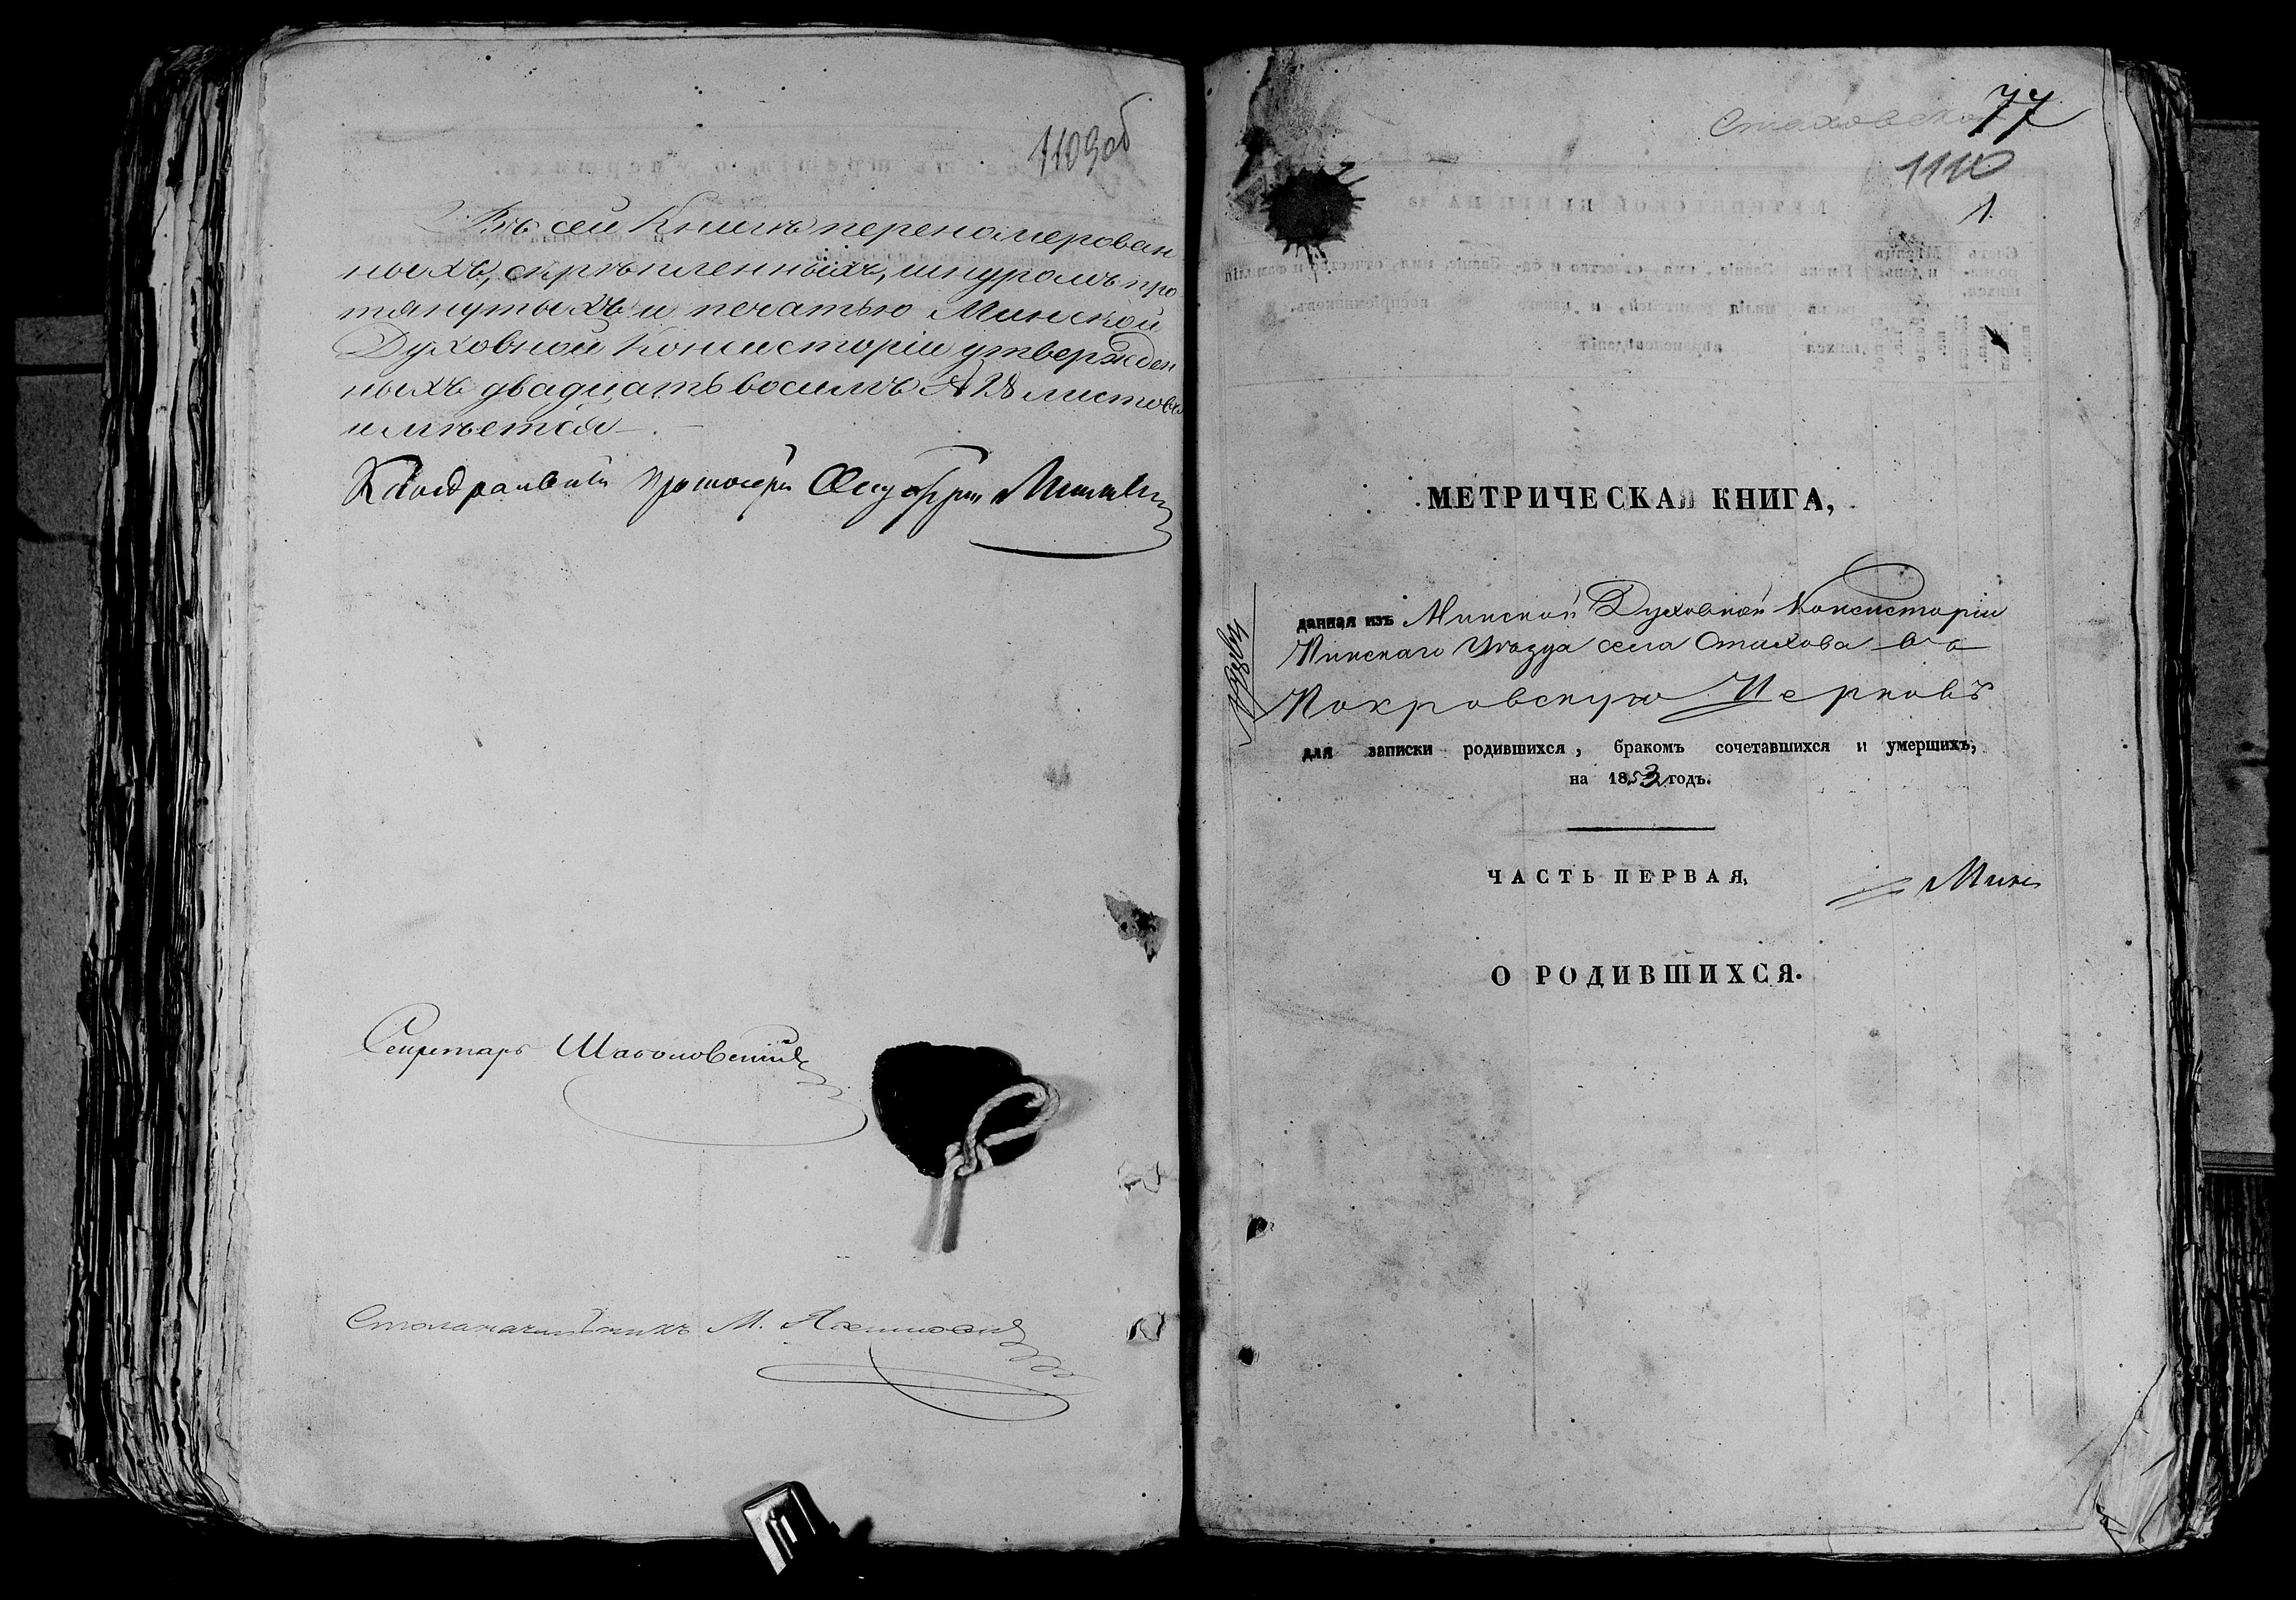 1109об
Въ сей Книгѣ переномерован
ныхъ, скрѣпленныхъ, шнуромъ про
тянутыхъ и печатью Минской
Духовной Консисторіи утвержден
ныхъ двадцать восемь 28 листовъ
имѣется.
Каѳедральный Протоіерей
Секретарь
Столоначальникъ М.
77
1110
1
МЕТРИЧЕСКАЯ КНИГА,
данная изъ Минской Духовной Консисторіи
Пинскаго Уѣзда села Стахова въ
Покровскую Церковь
для записки родившихся, бракомъ сочетавшихся и умершихъ,
на 1853 годъ.
ЧАСТЬ ПЕРВАЯ,
О РОДИВШИХСЯ.